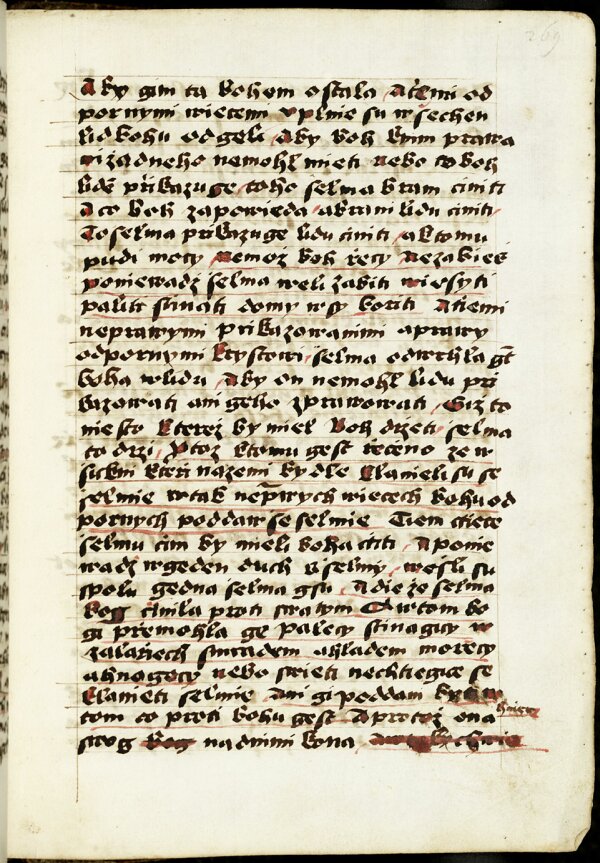 269
Aby gim ta bohem ostala Atiemi od
pornymi wiecmi vplnie su wssechen
lid bohu odgeli Aby boh knim prawa
nizadneho nemohl mieti Nebo co boh
lidu přikazuge toho selma bram ciniti
A co boh zapowieda abrani lidu ciniti
To selma prikazuge lidu ciniti aktomu
pudi mocy Nemoz boh řecy Nezabieg
poniewadz selma weli zabiti wiesyti
paliti stinati domy wsy boriti Atiemi
neprawymi prikazowanimi aprawy
odpornymi krystowi selma odwrhla gt
boha wlidu Aby on nemohl lidu při
kazowati ani geho zprawowati Giz to
miesto kterez by miel Boh drzeti selma
to drzi Protoz ktomu gest řečeno ze w
sickni kteři nazemi bydle klanieli su se
selmie wtak neprwych wiecech bohu od
pornych poddaw se selmie Tiem ctiece
selmu cim by mieli boha ctiti A ponie
wadz wgeden duch v selmy wesli su
spolu gedna selma gsu A die ze selma
bog cinila proti swatym O wtom bo
gi přemohla ge palecy stinagicy w
zalariech smradem ahladem morecy
ahnogecy nebo swieti nechtiegice se
klanieti selmie Ani gi poddani
tom co proti bohu gest A protoz ona
swog bog nadnimi kona